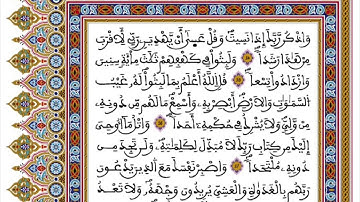 وَاذْكُر رَّبَّكَ إِذَا نَسِيتَ وَقُلْ عَسَىٰ أَنْ يَهْدِيَنِ رَبِّي لِأَقْرَبَ
مِنْ هَٰذَا رَشَدًا وَلَبِثُوا فِي كَهْفِهِمْ ثَلَٰثَ مِا۟ئَةٍ سِنِينَ
وَازْدَادُوا تِسْعًا قُلِ اللَّهُ أَعْلَمُ بِمَا لَبِثُوا لَهُ غَيْبُ
السَّمَٰوَٰتِ وَالْأَرْضِ أَبْصِرْ بِهِ وَأَسْمِعْ مَا لَهُم مِّن دُونِهِ
مِنْ وَلِيٍّ وَلَا يُشْرِكُ فِي حُكْمِهِ أَحَدًا وَاتْلُ مَا أُوحِيَ
إِلَيْكَ مِن كِتَابِ رَبِّكَ لَا مُبَدِّلَ لِكَلِمَٰتِهِ وَلَن تَجِدَ مِن
دُونِهِ مُلْتَحَدًا وَاصْبِرْ نَفْسَكَ مَعَ الَّذِينَ يَدْعُونَ
رَبَّهُم بِالْغَدَوٰةِ وَالْعَشِيِّ يُرِيدُونَ وَجْهَهُ وَلَا تَعْدُ